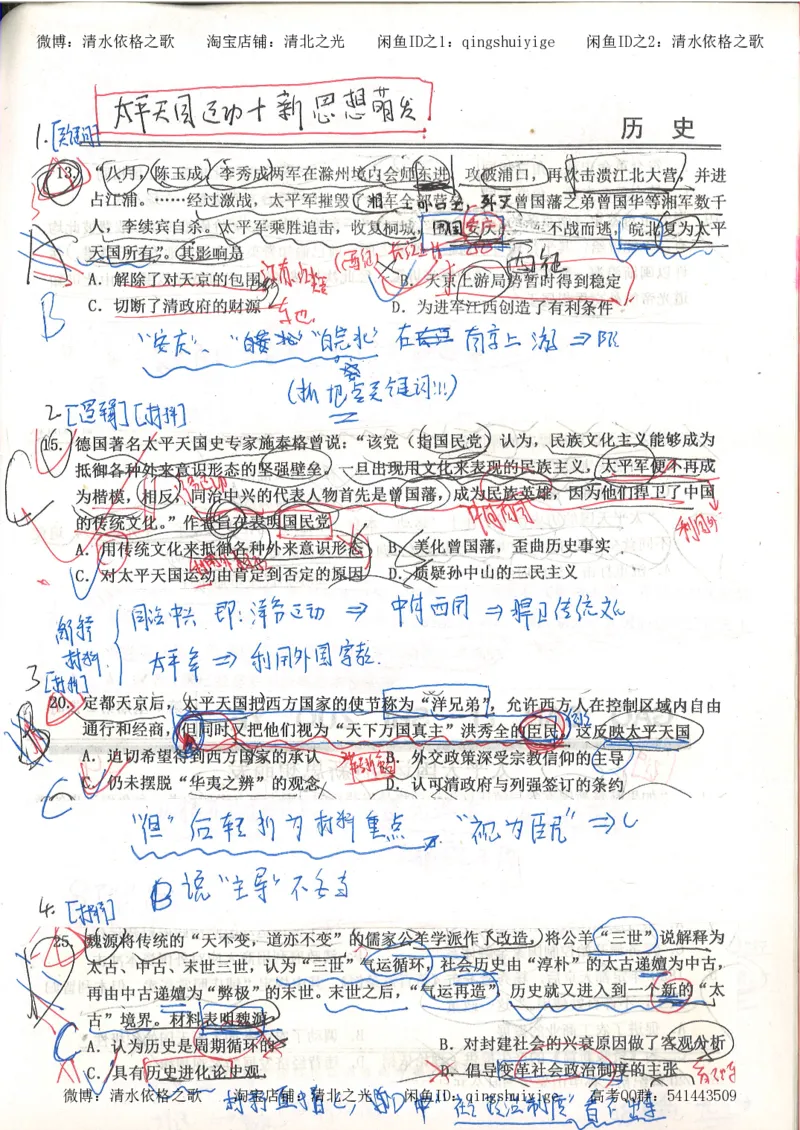 微博：清水依格之歌 淘宝店铺：清北之光 闲鱼ID之1：qingshuiyige 闲鱼ID之2：清水依格之歌
太平天国运动+新思想萌发
历 史
1.
13. “八月，陈玉成、李秀成两军在滁州境内会师东进，攻破浦口，再次击溃江北大营，并进
占江浦。……经过激战，太平军摧毁了湘军全部营垒，歼灭曾国藩之弟曾国华等湘军数千
人，李续宾自杀。太平军乘胜追击，收复桐城，围困安庆……不战而逃，皖北复为太平
天国所有”。其影响是
A. 解除了对天京的包围 B. 天京上游局势暂时得到稳定
西征
C. 切断了清政府的财源 D. 为进军江西创造了有利条件
B
“安庆”、“皖北”在南京上游 ⇒
(抓把握关键词!!!)
2 [逻辑][材料]
15. 德国著名太平天国史专家施泰格曾说：“该党（指国民党）认为，民族文化主义能够成为
抵御各种外来意识形态的坚强壁垒，一旦出现用文化来表现的民族主义，太平军便不再成
为楷模，相反，同治中兴的代表人物首先是曾国藩，成为民族英雄，因为他们捍卫了中国
的传统文化。”作者旨在表明国民党
A. 用传统文化来抵御各种外来意识形态 B. 美化曾国藩，歪曲历史事实
C. 对太平天国运动由肯定到否定的原因 D. 质疑孙中山的三民主义
解释材料
同治中兴 即：洋务运动 ⇒ 中体西用 ⇒ 捍卫传统文化
太平军 ⇒ 利用外国宗教.
3 [材料]
20. 定都天京后，太平天国把西方国家的使节称为“洋兄弟”，允许西方人在控制区域内自由
通行和经商，但同时又把他们视为“天下万国真主”洪秀全的臣民，这反映太平天国
A. 迫切希望得到西方国家的承认 B. 外交政策深受宗教信仰的主导
C. 仍未摆脱“华夷之辨”的观念 D. 认可清政府与列强签订的条约
C
“但”后转折为材料重点 “视为臣民” ⇒ C
B说“主导”不妥当
4. [材料]
25. 魏源将传统的“天不变，道亦不变”的儒家公羊学派作了改造，将公羊“三世”说解释为
太古、中古、末世三世，认为“三世”气运循环，社会历史由“淳朴”的太古递嬗为中古，
再由中古递嬗为“弊极”的末世。末世之后，“气运再造”，历史就又进入到一个新的“太
古”境界。材料表明魏源
A. 认为历史是周期循环的 B. 对封建社会的兴衰原因做了客观分析
C. 具有历史进化论史观 D. 倡导变革社会政治制度的主张
C
微博：清水依格之歌 淘宝店铺：清北之光 闲鱼ID：qingshuiyige 高考QQ群：541443509